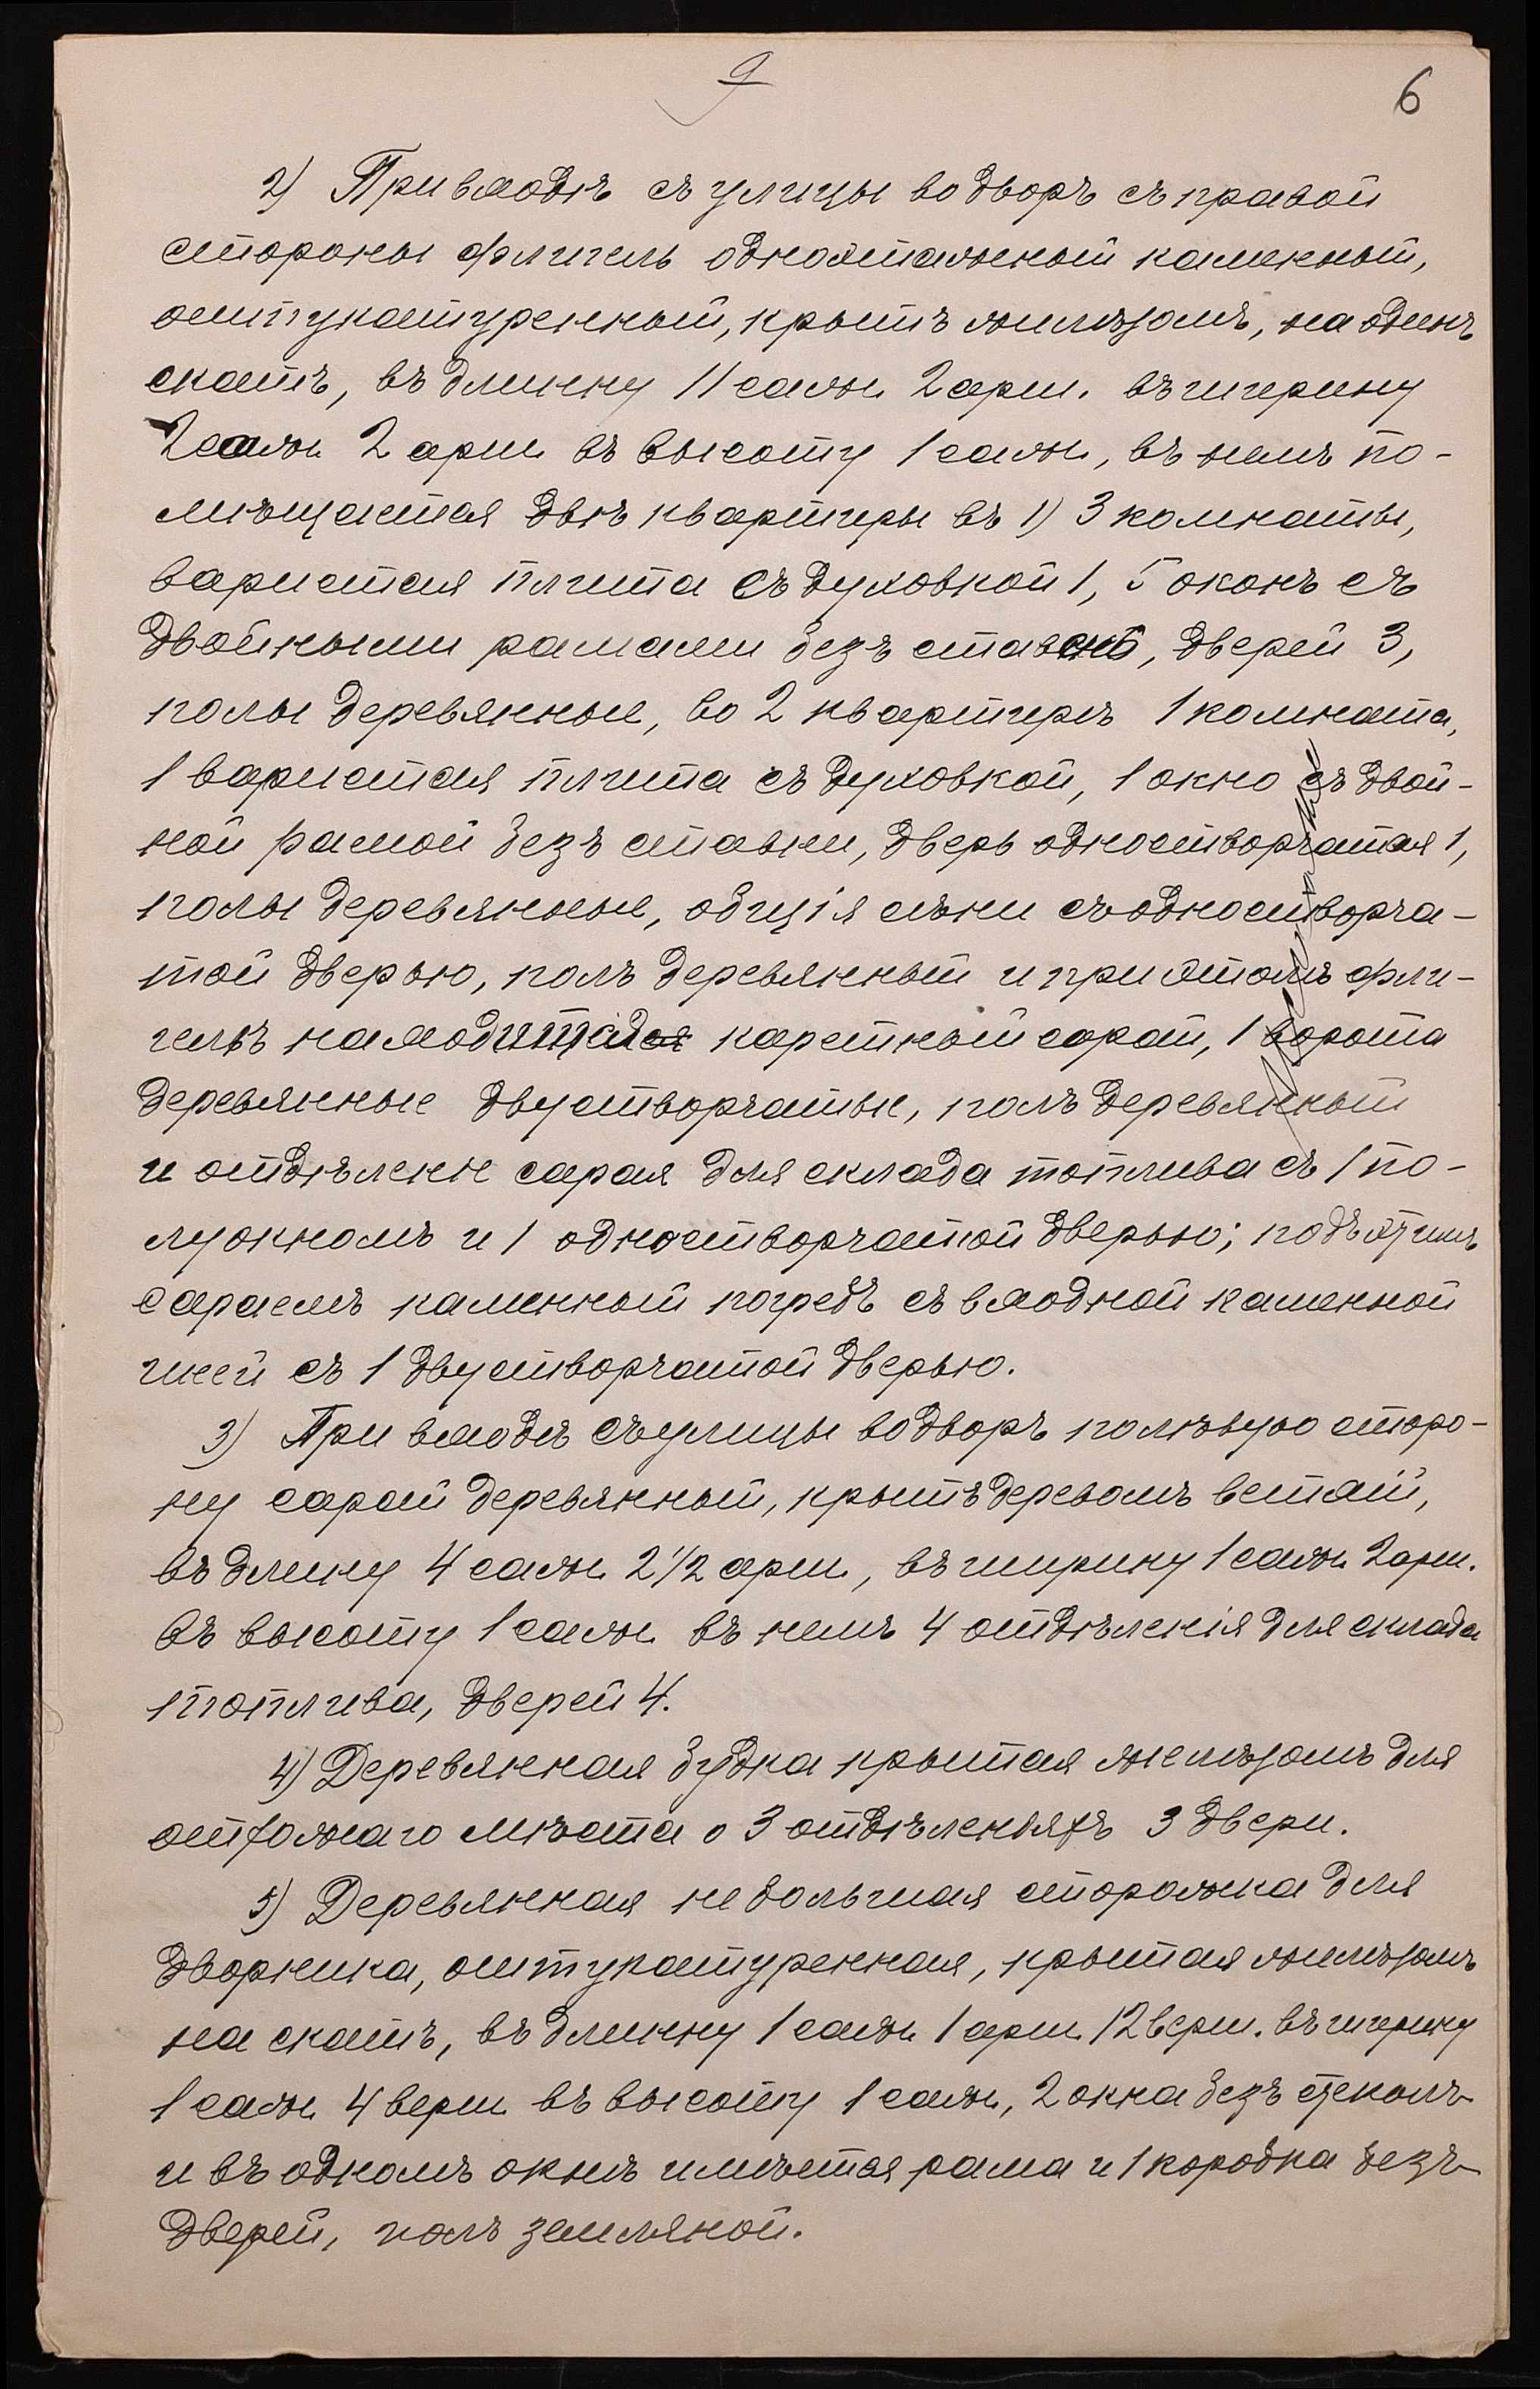 9
6
2) При входѣ съ улицы во дворъ съ правой
стороны флигель одноэтажный каменный,
оштукатуренный, крытъ желѣзомъ, на одинъ
скатъ, въ длинну 11 саж. 2 арш. въ ширину
2 саж. 2 арш. въ высоту 1 саж., въ немъ по-
мѣщается двѣ квартиры въ 1) 3 комнаты,
варистая плита съ духовкой 1, 5 оконъ съ
двойными рамами безъ ставнь, дверей 3,
полы деревянные, во 2 квартирѣ 1 комната,
1 варистая плита съ духовкой, 1 окно съ двой-
ной рамой безъ ставни, дверь одностворчатая 1,
полы деревянные, общія сѣни съ одностворча-
той дверью, полъ деревянный и при этомъ фли-
гелѣ находится каретный сарай, 1 ворота
деревянные двустворчатые, полъ деревянный
и отдѣленіе сарая для склада топлива съ 1 по-
луокномъ и 1 одностворчатой дверью; подъ этимъ
сараемъ каменный погребъ съ входной каменной
шеей съ 1 двустворчатой дверью.
3) При входѣ съ улицы во дворъ по лѣвую сторо-
ну сарай деревянный, крытъ деревомъ ветхій,
въ длину 4 саж. 2 1/2 арш., въ ширину 1 саж. 2 арш.
въ высоту 1 саж. въ немъ 4 отдѣленія для склада
топлива, дверей 4.
4) Деревянная будка крытая желѣзомъ для
отхожаго мѣста о 3 отдѣленіяхъ 3 двери.
5) Деревянная небольшая сторожка для
дворника, оштукатуренная, крытая желѣзомъ
на скатъ, въ длинну 1 саж. 1 арш. 12 верш. въ ширину
1 саж. 4 верш. въ высоту 1 саж., 2 окна безъ стеколъ
и въ одномъ окнѣ имѣется рама и 1 коробка безъ
дверей, полъ земляной.